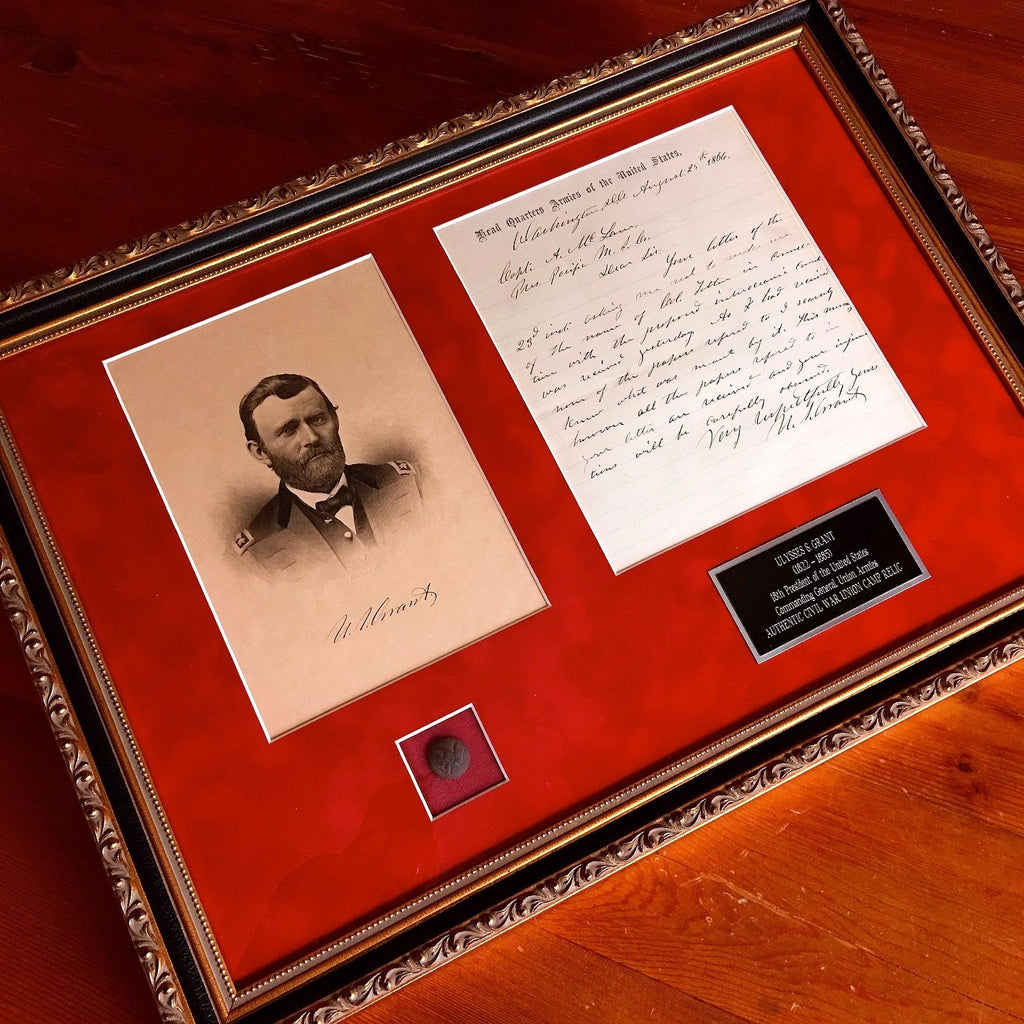 Head Quarters Armies of the United States,
Washington August 25th 1866.
Capt. A. McLane
Pres. Pacific M. S. Co.
Dear Sir:
Your letter of the
23d inst. asking me not to make use
of the name of Col. in connec-
tion with the proposed
was recieved yesterday. As I had recieved
none of the papers refered to I scarcely
knew what was meant by it. This morning
however all the papers refered to in
your letter are recieved and your injunc-
tions will be carefully observed.
Very respectfully yours
U. S. Grant
U. S. Grant
ULYSSES S. GRANT
(1822 - 1885)
18th President of the United States
Commanding General Union Armies
AUTHENTIC CIVIL WAR UNION CAMP RELIC